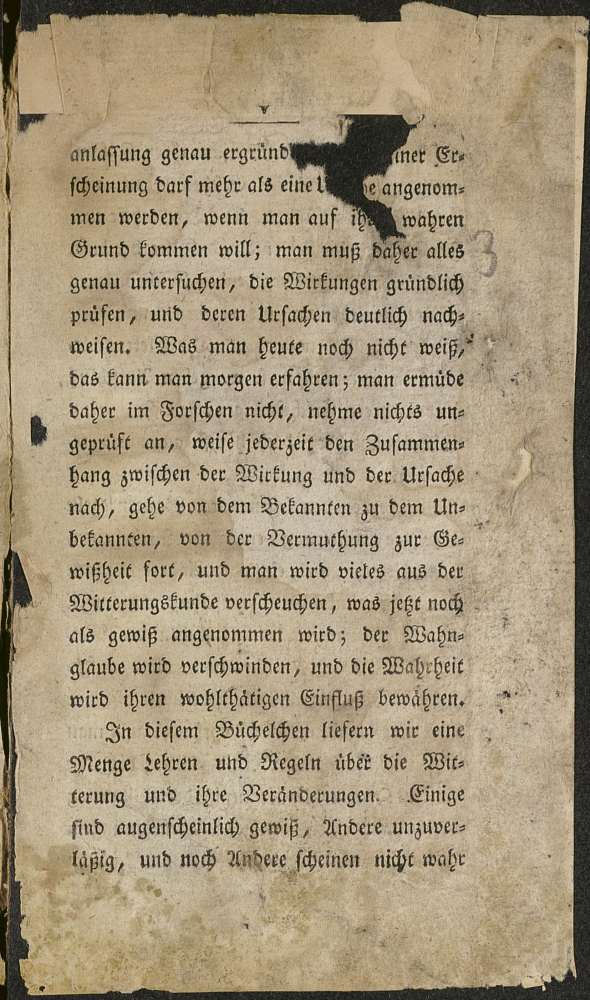 v
anlassung genau ergründ iner Er-
scheinung darf mehr als eine angenom-
men werden, wenn man auf wahren
Grund kommen will; man muß daher alles
genau untersuchen, die Wirkungen gründlich
prüfen, und deren Ursachen deutlich nach-
weisen. Was man heute noch nicht weiß,
das kann man morgen erfahren; man ermüde
daher im Forschen nicht, nehme nichts un-
geprüft an, weise jederzeit den Zusammen-
hang zwischen der Wirkung und der Ursache
nach, gehe von dem Bekannten zu dem Un-
bekannten, von der Vermuthung zur Ge-
wißheit fort, und man wird vieles aus der
Witterungskunde verscheuchen, was jetzt noch
als gewiß angenommen wird; der Wahn-
glaube wird verschwinden, und die Wahrheit
wird ihren wohlthätigen Einfluß bewähren.
In diesem Büchelchen liefern wir eine
Menge Lehren und Regeln über die Wit-
terung und ihre Veränderungen. Einige
sind augenscheinlich gewiß, Andere unzuver-
läßig, und noch Andere scheinen nicht wahr
3